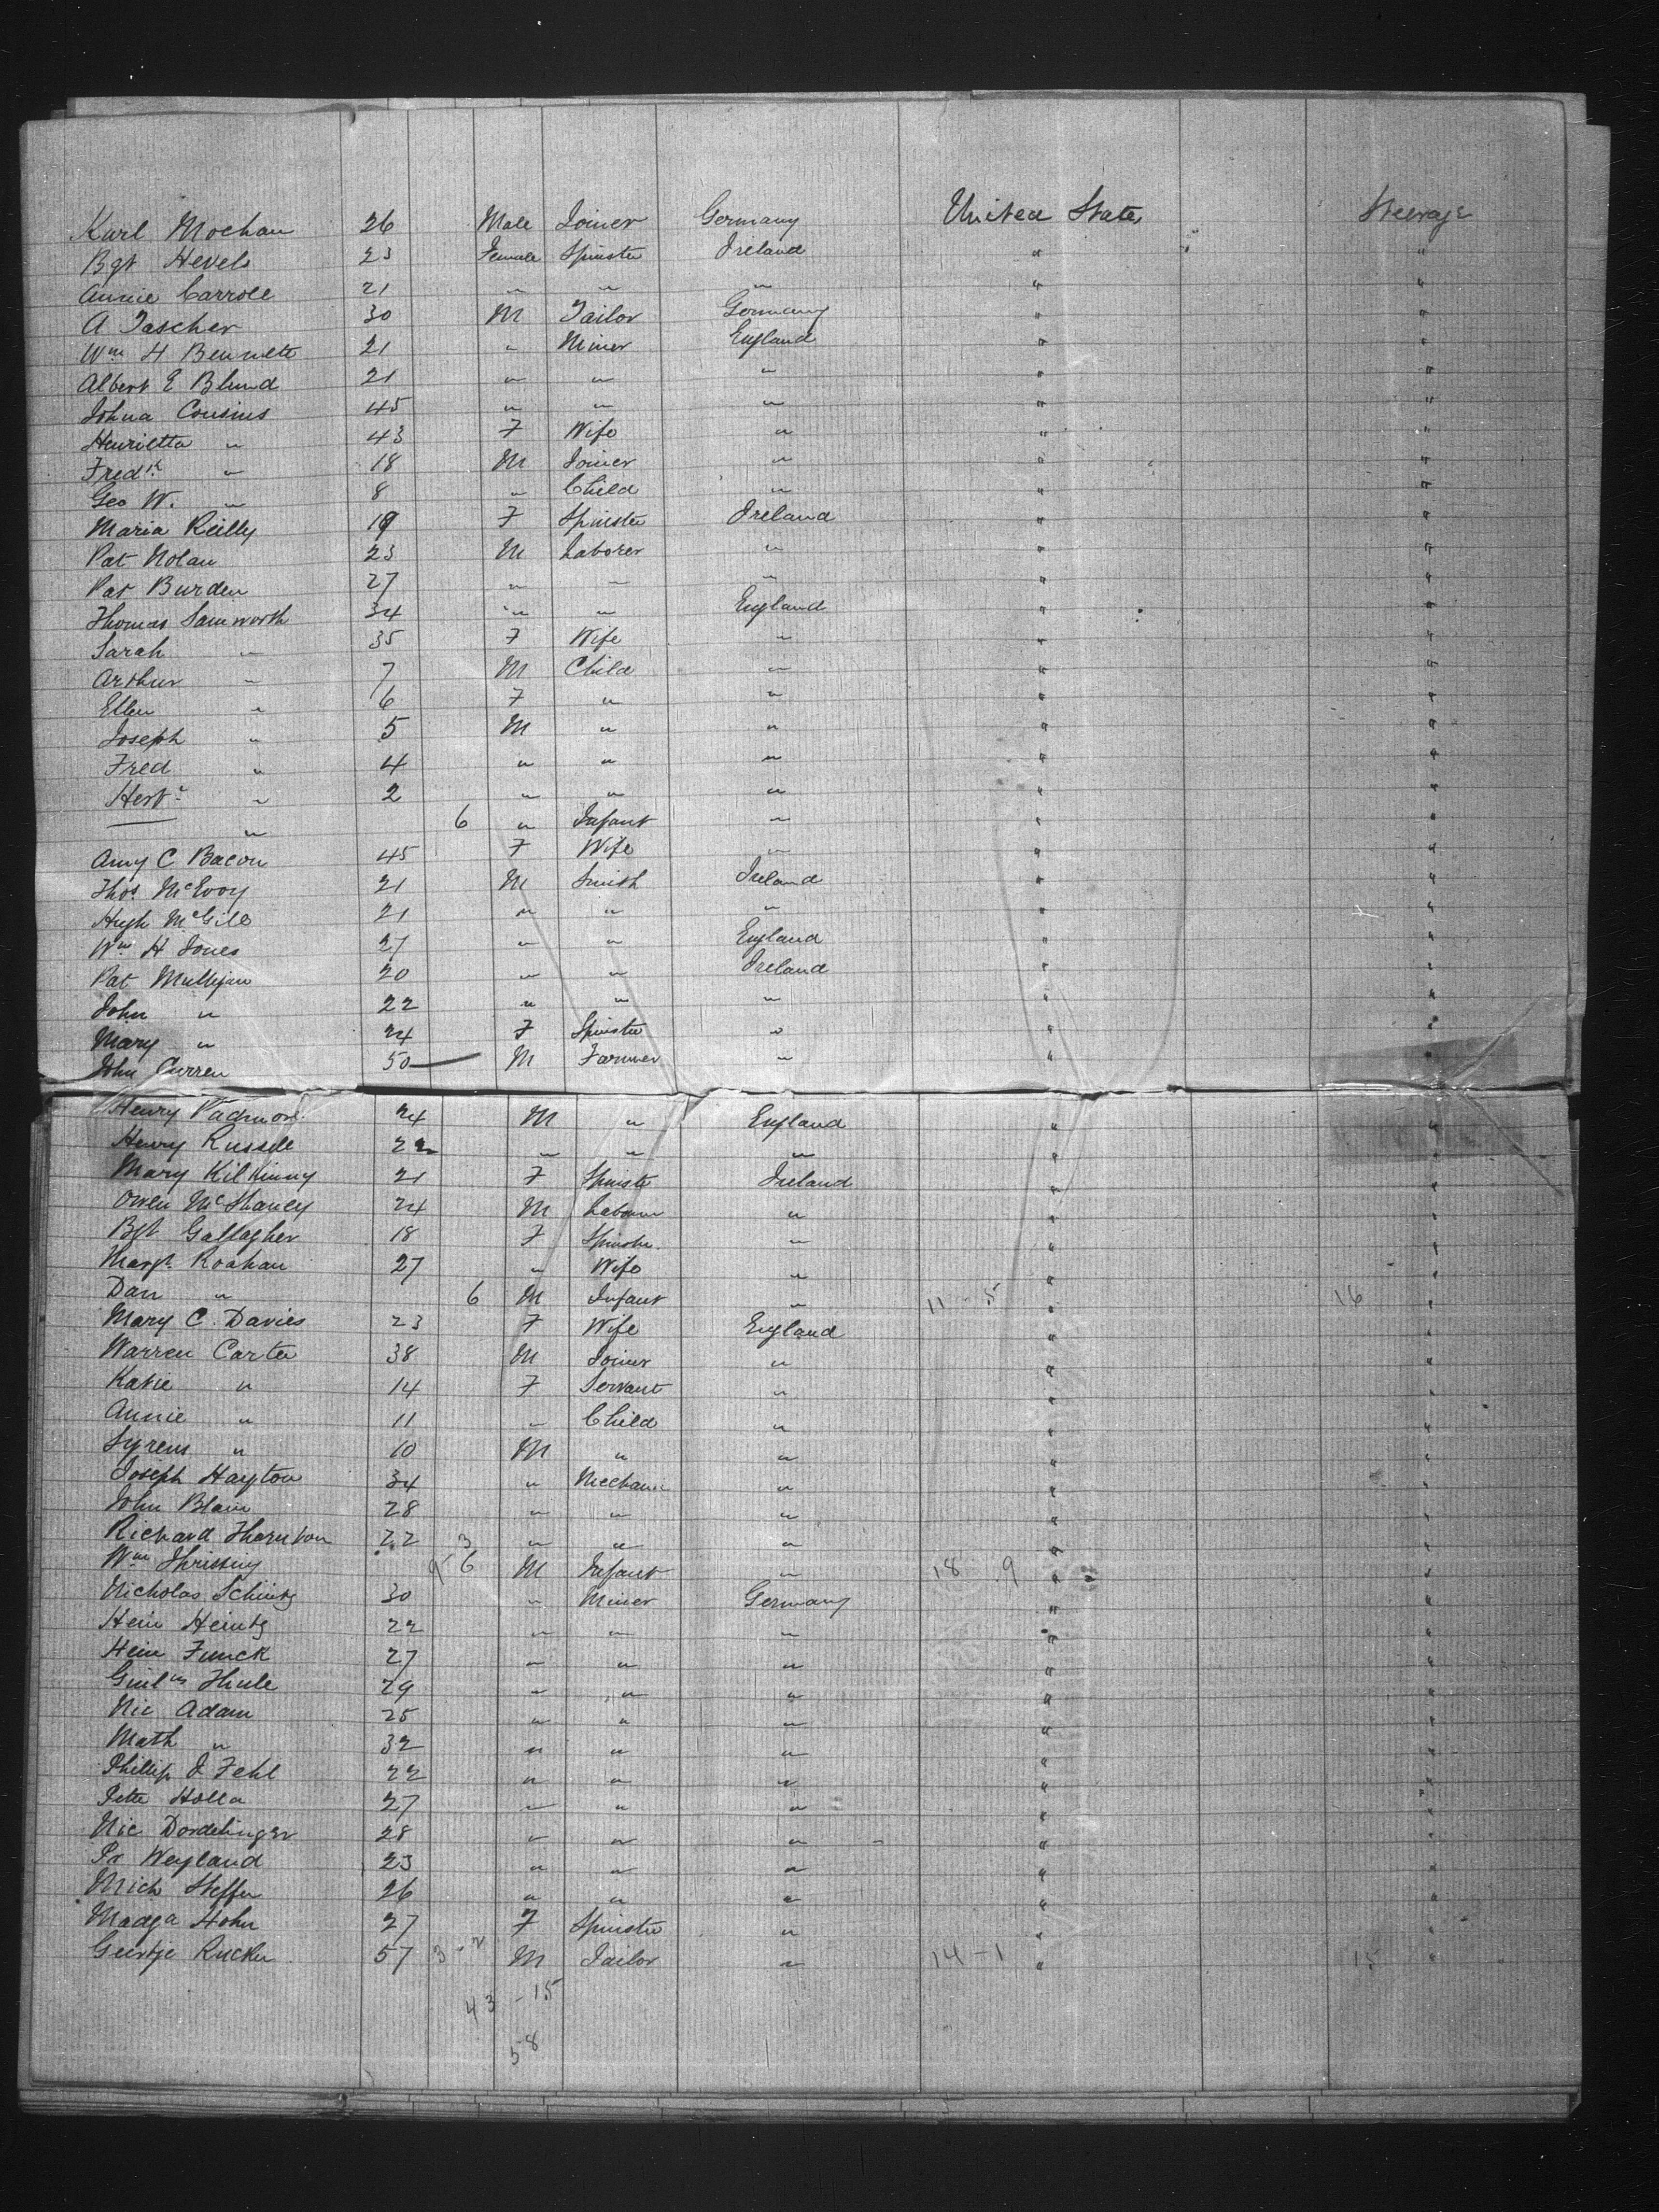 Karl Mochau 26 Male Joiner Germany United States Steerage
Bgt Hevels 23 Female Spinster Ireland " "
Annie Carroll 21 " " " " "
A Tascher 30 M Tailor Germany " "
Wm H Bennett 21 " Miner England " "
Albert E Blund 21 " " " " "
Johna Cousins 45 " " " " "
Henrietta " 43 F Wife " " "
Fredk " 18 M Joiner " " "
Geo W. " 8 " Child " " "
Maria Reilly 19 F Spinster Ireland " "
Pat Nolan 23 M Laborer " " "
Pat Burden 27 " " " " "
Thomas Samworth 34 " " England " "
Sarah " 35 F Wife " " "
Arthur " 7 M Child " " "
Ellen " 6 F " " " "
Joseph " 5 M " " " "
Fred " 4 " " " " "
Herbt " 2 " " " " "
— " 6 " Infant " " "
Amy C Bacon 45 F Wife " " "
Thos. McEvoy 21 M Smith Ireland " "
Hugh McGill 21 " " " " "
Wm H Jones 27 " " England " "
Pat Mulligan 20 " " Ireland " "
John " 22 " " " " "
Mary " 24 F Spinster " " "
John Curren 50 — M Farmer " " "
Henry Padmore 24 M " England " "
Henry Russell 22 " " " " "
Mary Kilkinny 21 F Spinster Ireland " "
Owen McShaney 24 M Laborer " " "
Bgt Gallagher 18 F Spinster " " "
Margt. Roahan 27 " Wife " " "
Dan " 6 M Infant " 11 - 5 " 16 "
Mary C. Davies 23 F Wife England " "
Warren Carter 38 M Joiner " " "
Katie " 14 F Servant " " "
Annie " 11 " Child " " "
Syrens " 10 M " " " "
Joseph Hayton 34 " Mechanic " " "
John Blain 28 " " " " "
Richard Thornton 22 3 " " " " "
Wm 9 - 6 M Infant " 18 . 9 " "
Nicholas Schintz 30 " Miner Germany " "
Hein Heintz 22 " " " " "
Hein Funck 27 " " " " "
29 " " " " "
Nic Adam 25 " " " " "
Math " 32 " " " " "
Phillip J Fehl 22 " " " " "
Pete Holla 27 " " " " "
Nic Dondelinger 28 " " " " "
Weyland 23 " " " " "
Mich Steffen 26 " " " " "
Madga Hohn 27 F Spinster " " "
Geertje Rucker 57 3 - 2 M Tailor " 14 - 1 " 15 "
43 - 15
58